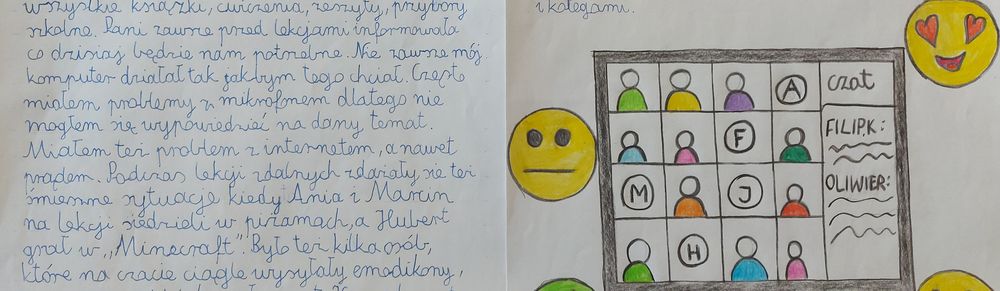 wszystkie książki, ćwiczenia, zeszyty, przybory
szkolne. Pani zawsze przed lekcjami informowała
co dzisiaj będzie nam potrzebne. Nie zawsze mój
komputer działał tak jakbym tego chciał. Często
miałem problemy z mikrofonem dlatego nie
mogłem się wypowiedzieć na dany temat.
Miałem też problem z internetem, a nawet
prądem. Podczas lekcji zdalnych zdarzały się też
śmieszne sytuacje kiedy Ania i Marcin
na lekcji siedzieli w piżamach, a Hubert
grał w „Minecraft”. Było też kilka osób,
które na czacie ciągle wysyłały emodikony,
i kolegami.
A
czat
F
FILIP.K:
M
J
OLIWIER:
H